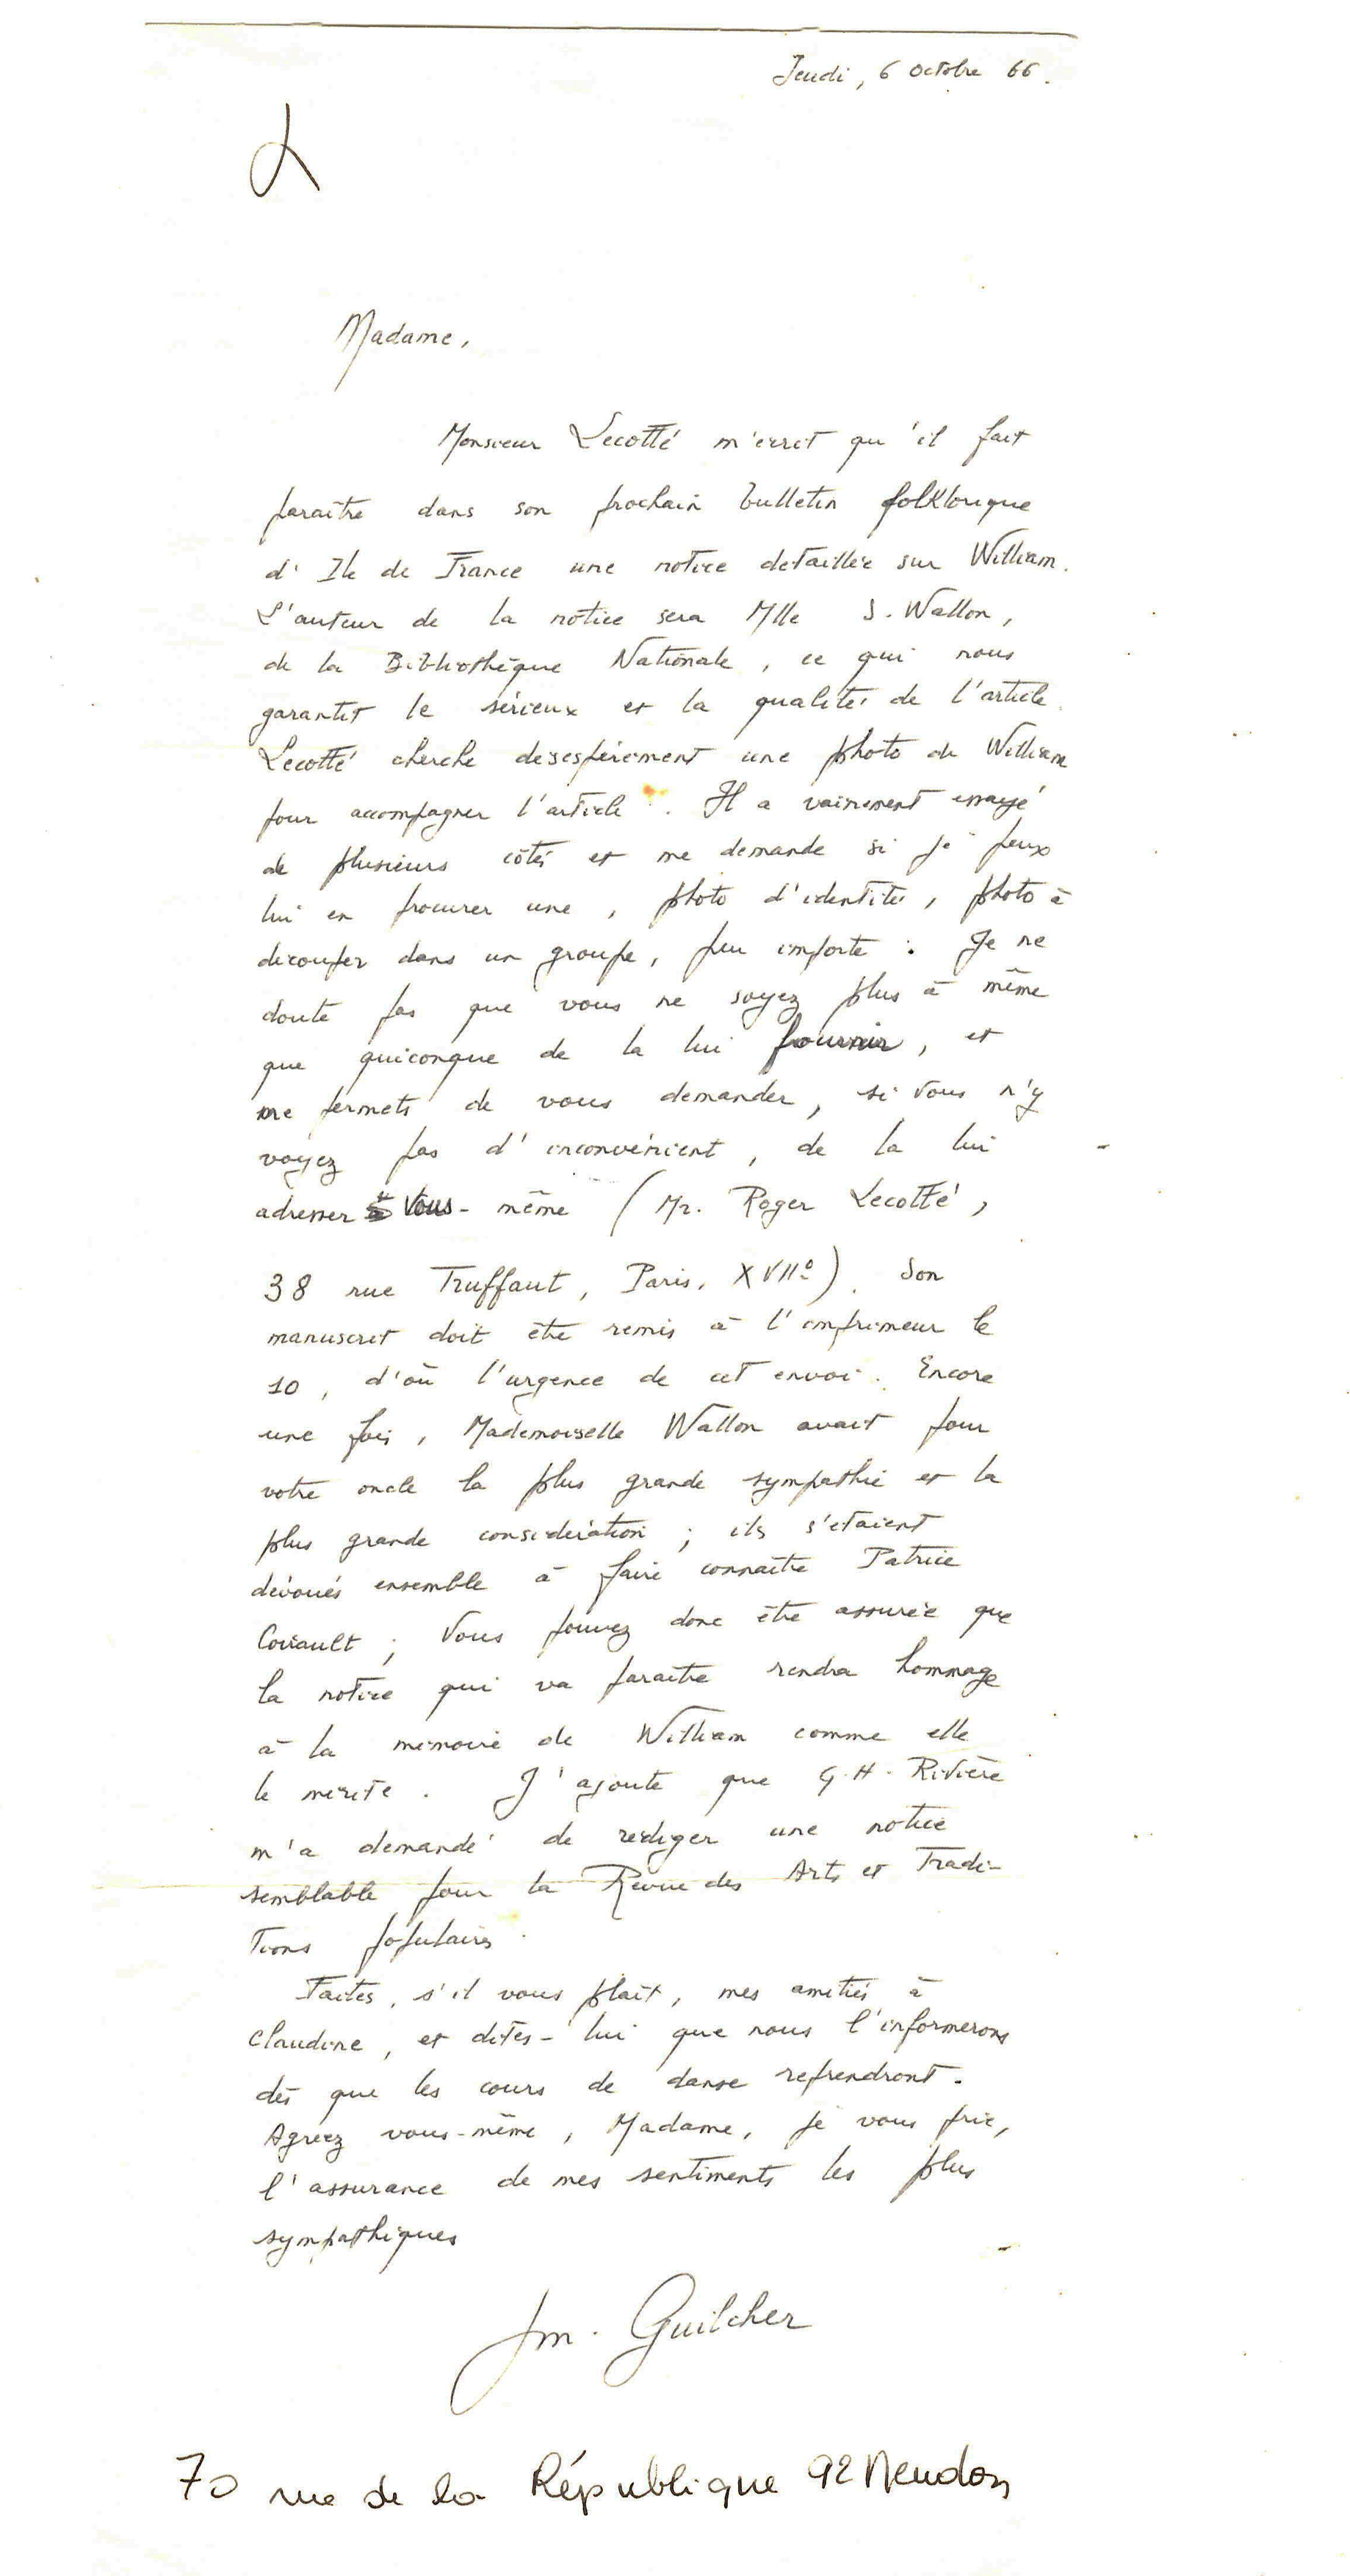 Jeudi, 6 octobre 66.
Madame,
Monsieur Lecotté m'écrit qu'il fait
paraître dans son prochain bulletin folklorique
d'Ile de France une notice détaillée sur William.
L'auteur de la notice sera Mlle S. Wallon,
de la Bibliothèque Nationale, ce qui nous
garantit le sérieux et la qualité de l'article.
Lecotté cherche désespérément une photo de William
pour accompagner l'article. Il a vainement essayé
de plusieurs côtés et me demande si je peux
lui en procurer une, photo d'identité, photo à
découper dans un groupe, peu importe. Je ne
doute pas que vous ne soyez plus à même
que quiconque de la lui fournir, et
me permets de vous demander, si vous n'y
voyez pas d'inconvénient, de la lui
adresser vous-même (Mr. Roger Lecotté,
38 rue Truffaut, Paris, XVIIe). Son
manuscrit doit être remis à l'imprimeur le
10, d'où l'urgence de cet envoi. Encore
une fois, Mademoiselle Wallon avait pour
votre oncle la plus grande sympathie et la
plus grande considération ; ils s'étaient
dévoués ensemble à faire connaître Patrice
Coirault ; Vous pouvez donc être assurée que
la notice qui va paraître rendra hommage
à la mémoire de William comme elle
le mérite. J'ajoute que G.H. Rivière
m'a demandé de rédiger une notice
semblable pour la Revue des Arts et Tradi-
tions populaires.
Faites, s'il vous plaît, mes amitiés à
Claudine, et dites-lui que nous l'informerons
dès que les cours de danse reprendront.
Agréez vous-même, Madame, je vous prie,
l'assurance de mes sentiments les plus
sympathiques
Jm. Guilcher
70 rue de la République 92 Meudon